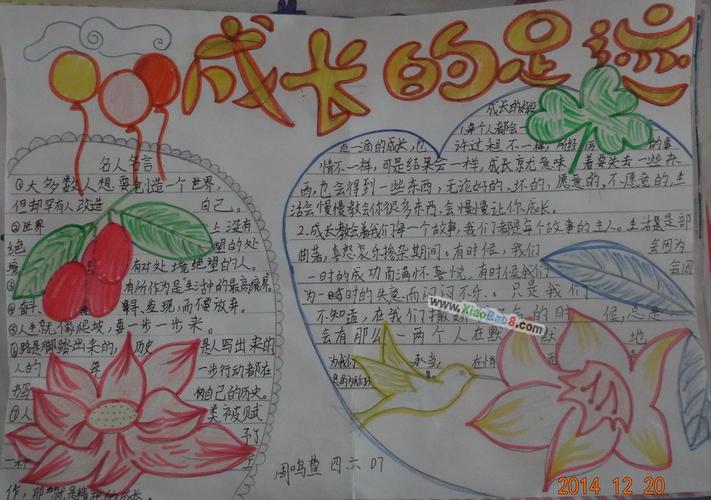 成长的足迹
名人名言
①大多数人想要创造一个世界，
但却罕有人改造 自己。
②世界 上没有
绝 望的处
境 有对处境绝望的人。
有所作为是生活中的最高境界。
④奋斗、 发现，而不放弃。
⑤人生就像爬坡，每一步一步来。
⑥路是脚踏出来的，历史 是人写出来的
人的 每 一步行动都在
书写 自己的历史。
⑦人 类被赋
予了
一种 工
作，那就是精神的成长。
成长的
1.每个人都会一
点一滴的成长，也 许过程不一样，所经 的事
情不一样，可是结果会一样，成长就意味 着要失去一些东
西，也会得到一些东西，无论好的、坏的，愿意的，不愿意的，生
活会慢慢教会你很多东西，会慢慢让你成长。
2.成长教会着我们每一个故事，我们都是每个故事的主人。生活总是部
曲落，喜怒哀乐掺杂期间。有时候，我们 会因为
一时的成功而满怀喜悦，有时候我们 会因
为一时的失意而闷闷不乐。只是我们
不知道，在我们 的时候，总是
会有那么一两个人在默 默 地
为我们 承当，
www.XiaoBao8.com
周鸣萱 四六 07
2014 12 20